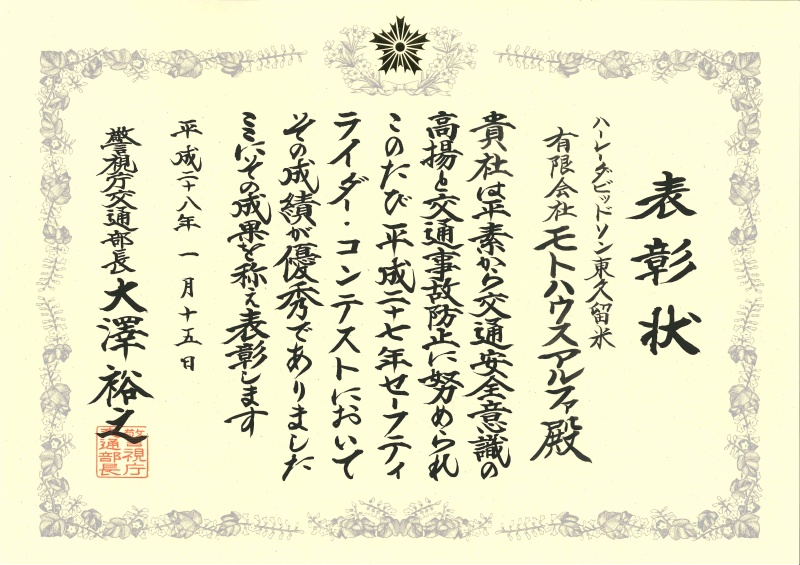 表彰状
ハーレーダビッドソン東久留米
有限会社モトハウスアルファ殿
貴社は平素から交通安全意識の
高揚と交通事故防止に努められ
このたび平成二十七年セーフティ
ライダー・コンテストにおいて
その成績が優秀でありました
ここにその成果を称え表彰します
平成二十八年一月十五日
警視庁交通部長大澤裕之
警視庁
交通部長